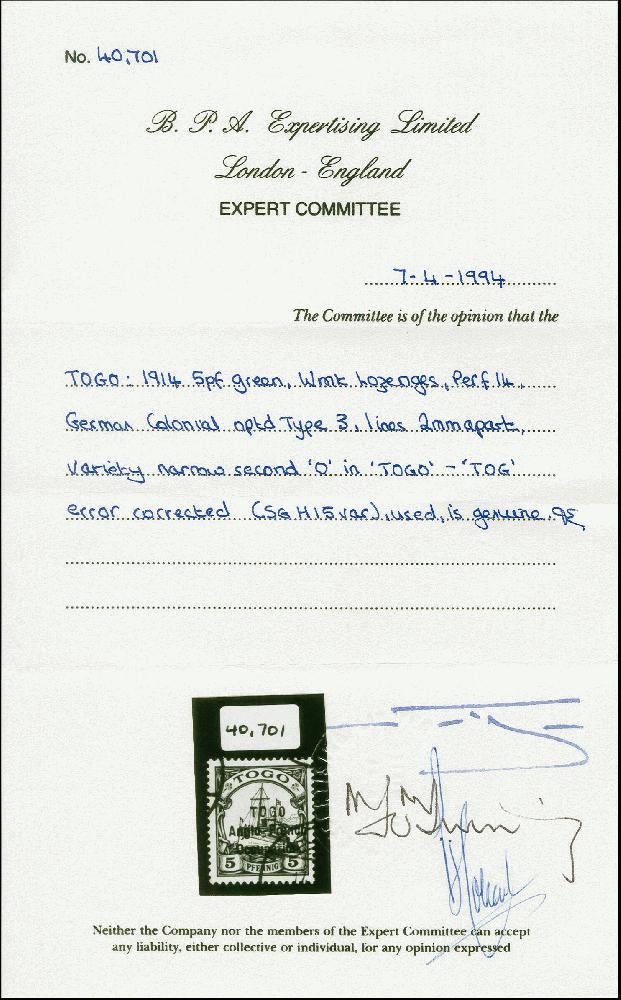 No. 40,701
B. P. A. Expertising Limited
London - England
EXPERT COMMITTEE
7-4-1994
The Committee is of the opinion that the
TOGO: 1914 5pf green, Wmk Lozenges, Perf 14,
German Colonial optd Type 3, lines 2mm apart,
variety narrow second 'O' in 'TOGO' - 'TOG'
error corrected (SG H15 var), used, is genuine.
40,701
TOGO
TOGO
Anglo-French
Occupation
5 PFENNIG 5
Neither the Company nor the members of the Expert Committee can accept
any liability, either collective or individual, for any opinion expressed